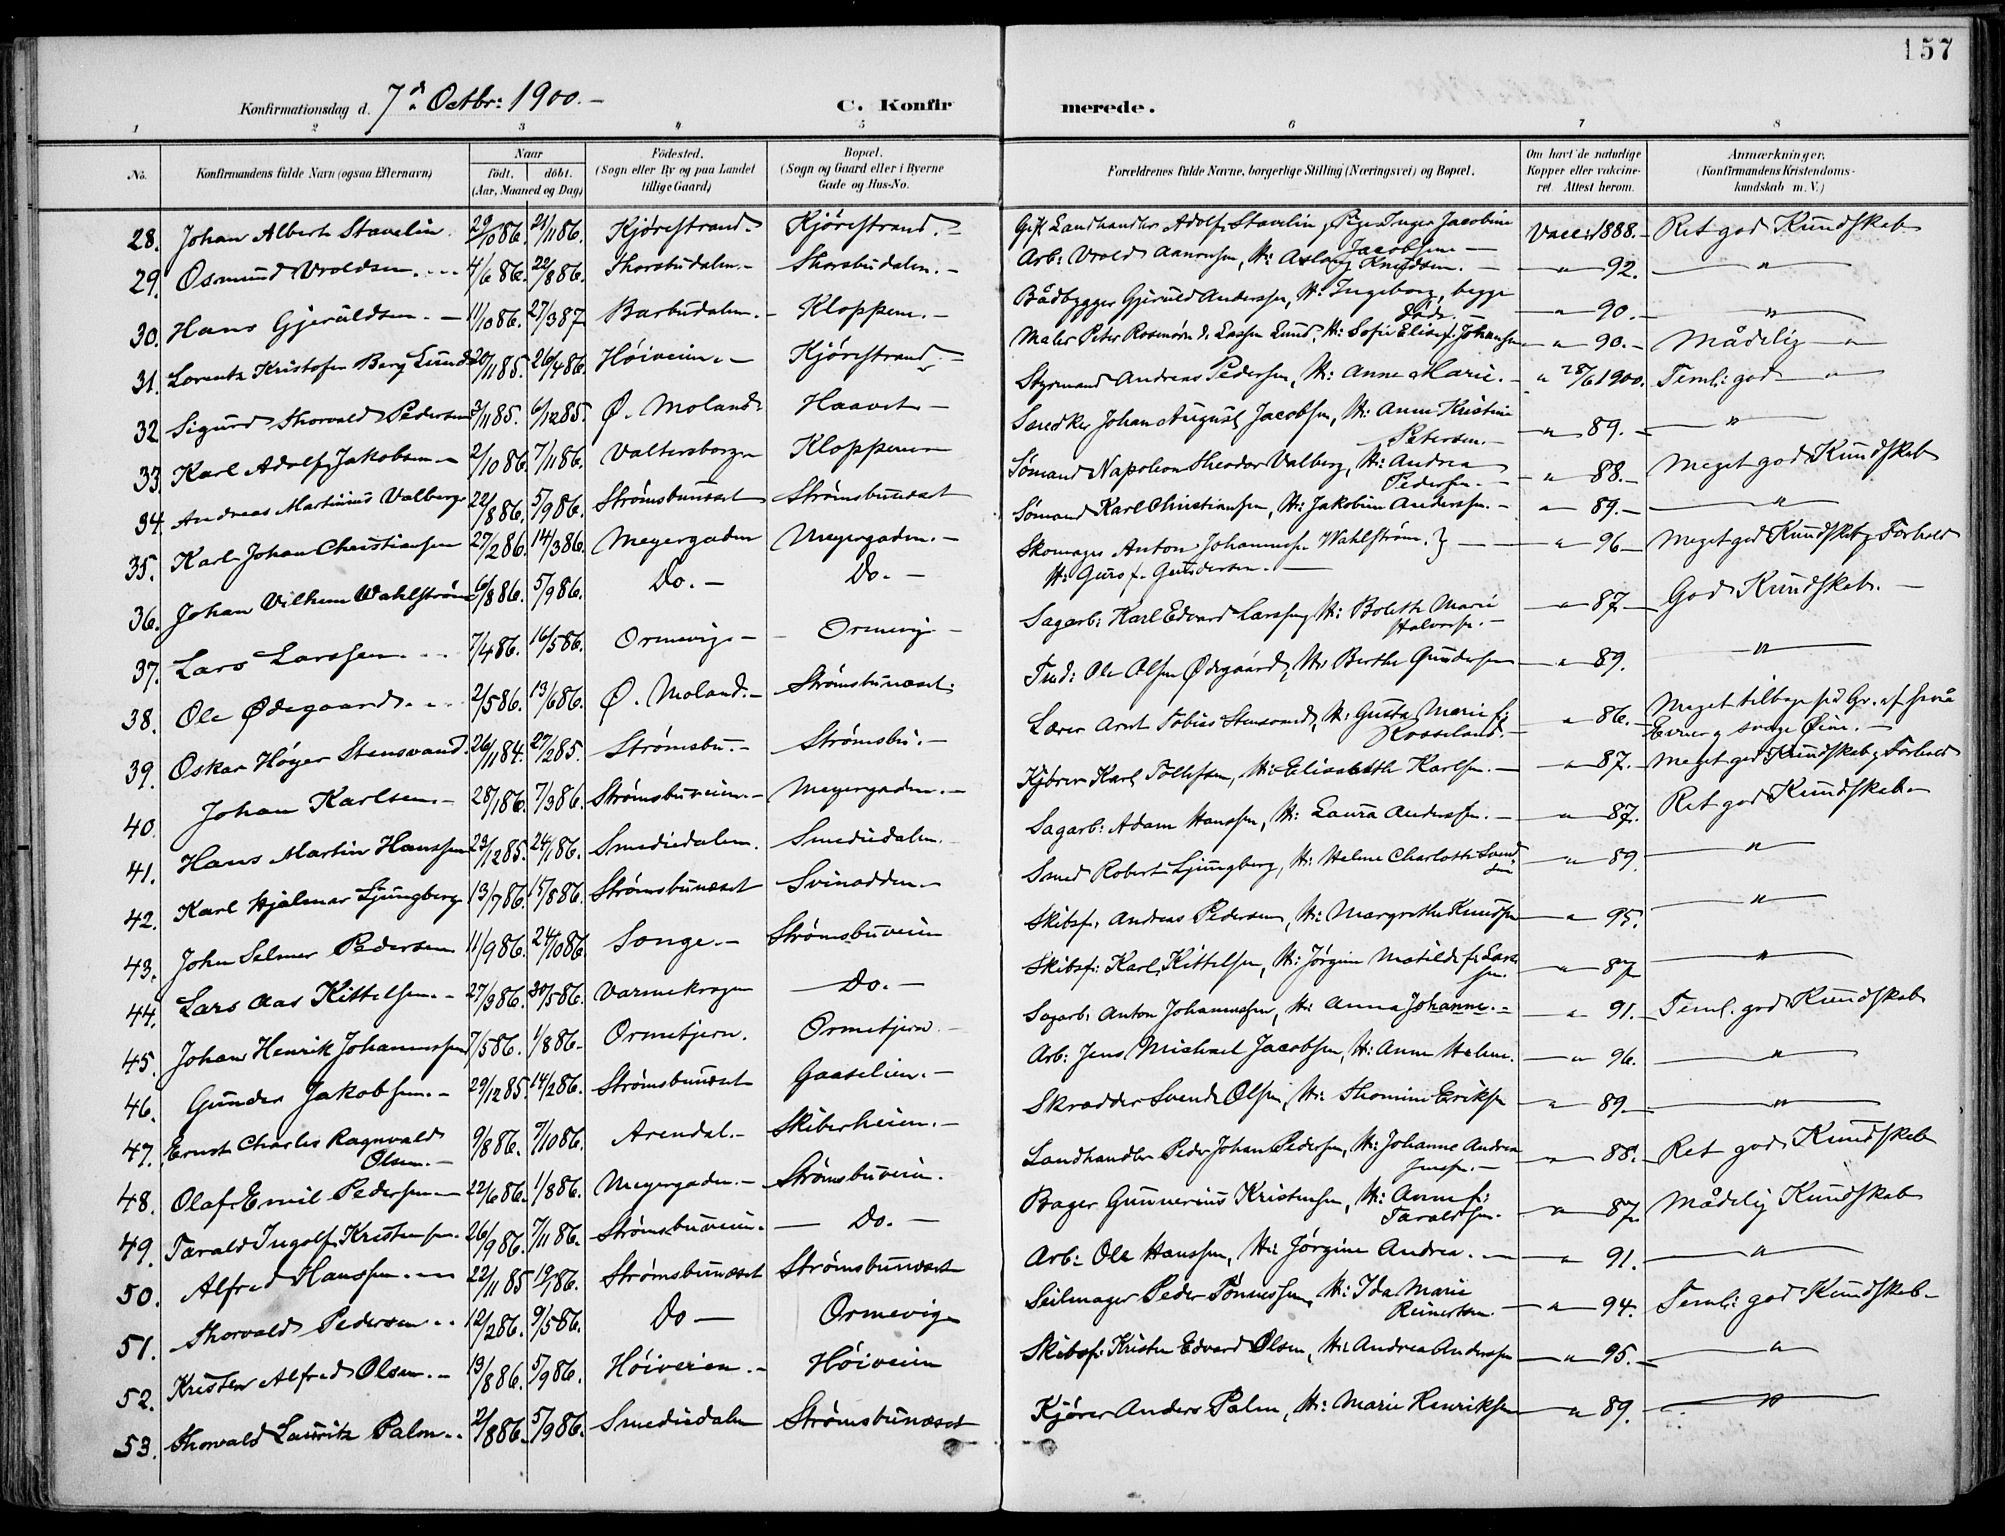 157
Konfirmationsdag d. 7d. Octbr: 1900. –
C. Konfirmerede.
1 2 3 4 5 6 7 8
No. Konfirmandens fulde Navn (ogsaa Efternavn) Naar födt. döbt. (Aar, Maaned og Dag) Födested. (Sogn eller By og paa Landet tillige Gaard) Bopæl. (Sogn og Gaard eller i Byerne Gade og Hus-No. Forældrenes fulde Navne, borgerlige Stilling (Næringsvei) og Bopæl. Om havt de naturlige Kopper eller vaccineret. Attest herom. Anmærkninger. (Konfirmandens Kristendomskundskab m. V.)
28. Johan Albert Stavelin 29/10 86. 21/11 86. Kjørestrand. Kjørestrand. – Gift Landhandler Adolf Stavelin, Pige Inger Jacobine Jacobsen – Vacc: 1888. – Ret god Kundskab
29. Osmund Vroldsen. 4/6 86. 22/8 86. Thorsbudalen. – Thorsbudalen. – Arb: Vrold Aanonsen, H: Aslaug Knudsen. – " 92. "
30. Hans Gjeruldsen. – 11/10 86. 27/3 87 Barbudalen. – Kloppene. – Bådbygger Gjeruld Anderssen, H: Ingeborg, begge døde. – " 90. – "
31. Lorentz Kristofer Berg Lund 20/11 85. 26/4 86. Høiveien. – Kjørestrand. Maler Peter Rosenørn d. Lassen Lund, H: Sofie Elise f. Johansen " 90. – Mådelig "
32. Sigurd Thorvald Pedersen 3/11 85. 6/12 85. Ø. Moland. Haavet – Styrmand Andreas Pedersen, H: Anne Marie. – " 28/6 1900. Teml: god "
33. Karl Adolf Jakobsen – 2/10 86. 7/11 86. Valtersborg – Kloppene Snedker Johan August Jacobsen, H: Anne Kristine Petersen. – " 89. – "
34. Andreas Martinius Valberg 22/8 86. 5/9 86. Strømsbunæset Strømsbunæset Sømand Napoleon Theodor Valberg, H: Andrea Pedersen. – " 88. – Meget god Kundskab
35. Karl Johan Christiansen 27/2 86. 14/3 86. Meyergaden Meyergaden. – Sømand Karl Christiansen, H: Jakobine Anderssen. – " 89. – "
36. Johan Vilhem Wahlstrøm 6/8 86. 5/9 86. Do. – Do. – Skomager Anton Johannessen Wahlstrøm. } H: Guro f. Gundersen. – " 96 – Meget god Kundskab og Forhold
37. Lars Larssen. 7/4 86. 16/5 86. Ormevig – – Ormevig – Sagarb: Karl Edvard Larssen, H: Bolette Marie Halvorsen. – " 87. – God Kundskab. –
38. Ole Ødegaard. 2/5 86. 13/6 86. Ø. Moland. – Strømsbunæset. Ole Olsen Ødegaard, H: Berthe Gundersen " 89. "
39. Oskar Høyer Stensvand. 26/11 84. 27/2 85. Strømsbu. – Strømsbu. – Lærer Arnt Tobias Stensvand, H: Gusta Marie f: Rosseland. – " 86. – Meget tilbage på Gr. af små Evner og svage Øine. –
40. Johan Karlsen – 28/1 86. 7/3 86. Strømsbuveien. – Meyergaden. – Kjører Karl Tollefsen, H: Elisabeth Karlsen. – " 87. – Meget god Kundskab og Forhold
41. Hans Martin Hanssen 23/12 85. 24/1 86. Smediedalen. Smediedalen. Sagarb: Adam Hanssen, H: Laura Anderssen. – " 87. Ret god Kundskab –
42. Karl Hjalmar Ljungberg 13/7 86. 15/8 86. Strømsbunæset Svinodden. – Smed Robert Ljungberg, H: Helene Charlotte Svendsen " 89 "
43. John Selmer Pedersen 11/9 86. 24/10 86. Songe. – Strømsbuveien Skibsf. Andreas Pedersen, H: Margrethe Knudsen " 95. "
44. Lars Aas Kittelsen. – 27/3 86. 30/5 86. Varmekrogen – Do. – Skibsf: Karl Kittelsen, H: Jørgine Matilde f: Larssen. " 87 "
45. Johan Henrik Johannessen 7/5 86. 1/8 86 – Ormetjern. Ormetjern. – Sagarb: Anton Johannessen, H: Anna Johanne. – " 91. – Teml. god Kundskab
46. Gunder Jakobsen. – 29/12 85. 14/2 86. Strømsbunæset Gaaselien. – Arb: Jens Michael Jacobsen, H: Anne Helene. " 96. "
47. Ernst Charles Ragnvald Olsen. – 9/8 86. 7/10 86. Arendal. – Skiberheien. – Skrædder Svend Olsen, H: Thomine Eriksen " 89. "
48. Olaf Emil Pedersen 22/6 86. 1/8 86. Meyergaden. – Strømsbuveien. Landhandler Peder Johan Pedersen, H: Johanne Andrea Jensen. – " 88. – Ret god Kundskab
49. Tarald Ingolf Kristensen. 26/9 86. 7/11 86. Strømsbuveien. – Do. – Bager Gunnerius Kristensen, H: Anne f: Taraldsen. " 87. Mådelig Kundskab
50. Alfred Hanssen. 22/11 85 Strømsbunæset Strømsbunæset Arb: Ole Hanssen, H: Jørgine Andrea. – " 91. "
51. Thorvald Pedersen. 12/2 86. 9/5 86. Do – Ormevig Seilmager Peder Tønnessen, H: Ida Marie Reinertsen. – " 94. Teml: god Kundskab –
52. Kristen Alfred Olsen. – 13/8 86. 5/9 86. Høiveien. – Høiveien Skibsf: Kristen Edvard Olsen, H: Andrea Anderssen " 95. – "
53. Thorvald Lauritz Palm. 2/8 86. 5/9 86. Smediedalen Strømsbunæset Kjører Anders Palm, H: Marie Henriksen " 89. "